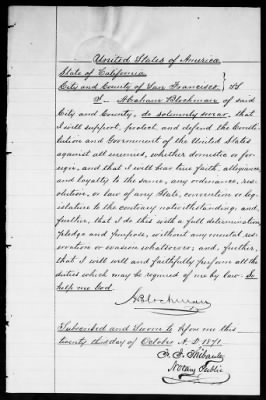 United States of America
State of California
City and County of San Francisco } SS
I - Abraham Blochman of said
City and County, do solemnly swear, that
I will support, protect and defend the Consti-
tution and Government of the United States
against all enemies, whether domestic or for-
eign, and that I will bear true faith, allegiance
and loyalty to the same, any ordinance, res-
olution, or law of any State, convention or leg-
islature to the contrary notwithstanding; and,
further, that I do this with a full determination,
pledge and purpose, without any mental res-
ervation or evasion whatsoever; and, further,
that I will well and faithfully perform all the
duties which may be required of me by law. So
help me God.
A Blochman
Subscribed and Sworn to before me this
twenty third day of October A.D. 1871.
Thibault
Notary Public